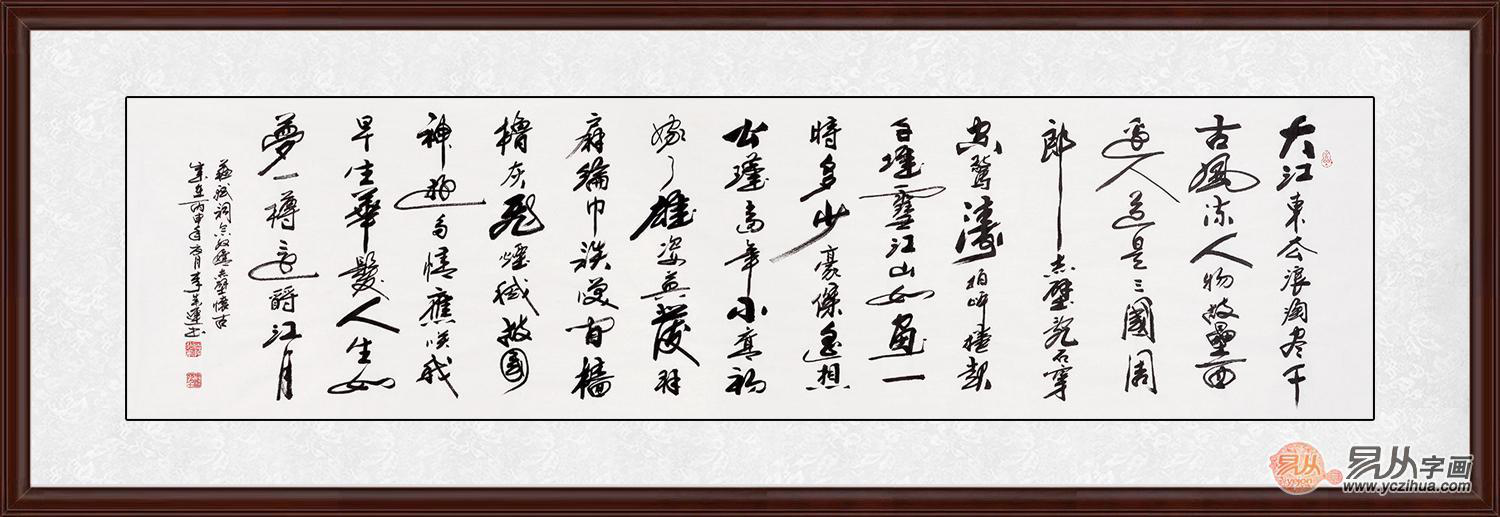 大江東去浪淘尽千
古風流人物故壘西
邊人道是三國周
郎赤壁乱石穿
空驚濤拍岸捲起
千堆雪江山如画一
時多少豪傑遙想
公瑾當年小喬初
嫁了雄姿英發羽
扇綸巾談笑間檣
櫓灰飛煙滅故國
神遊多情應笑我
早生華髮人生如
夢一樽還酹江月
蘇軾詞念奴嬌赤壁懷古
歲在丙申年月李書
易从
yejon
易从字画
www.yczihua.com